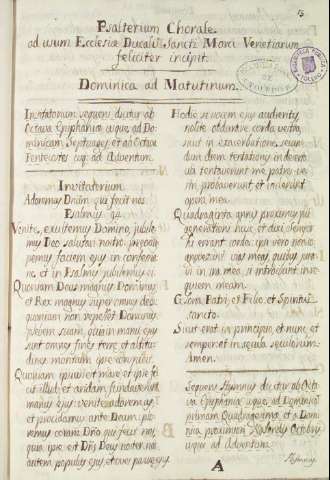 13
Psalterium Chorale
ad usum Ecclesiæ Ducalis Sancti Marci Venetiarum
feliciter incipit.
Dominica ad Matutinum.
Invitatorium sequens dicitur ab
Octava Epiphaniæ usque ad Do-
minicam Septuages. et ab Octava
Pentecostes usq. ad Adventum.
Invitatorium
Adoremus Dñum qui fecit nos.
Psalmus 94
Venite, exultemus Domino, jubile-
mus Deo salutari nostro: præoccu-
pemus faciem ejus in confessio-
ne, et in Psalmis jubilemus ei.
Quoniam Deus magnus Dominus,
et Rex magnus super omnes deos:
quoniam non repellet Dominus
plebem suam, quia in manu ejus
sunt omnes fines terræ, et altitu-
dines montium ipse conspicit.
Quoniam ipsius est mare, et ipse fe-
cit illud, et aridam fundaverunt
manus ejus: venite adoremus,
et procidamus ante Deum: plo-
remus coram Dño, qui fecit nos,
quia ipse est Dñs Deus noster: nos
autem populus ejus, et oves pascuæ ejus.
Hodie si vocem ejus audieritis,
nolite obdurare corda vestra,
sicut in exacerbatione, secun-
dum diem tentationis in deserto:
ubi tentaverunt me patres ves-
tri, probaverunt et viderunt
opera mea.
Quadraginta annis proximus fui
generationi huic, et dixi: semper
hi errant corde: ipsi vero non co-
gnoverunt vias meas, quibus jura-
vi in ira mea, si introibunt in re-
quiem meam.
Gloria Patri, et Filio, et Spiritui
sancto.
Sicut erat in principio, et nunc, et
semper, et in sæcula sæculorum.
Amen.
Sequens Hymnus dicitur ab Octa-
va Epiphaniæ usque ad Dominicam
primam Quadragesimæ, et a Domi-
nica proximiori Kalendis Octobris
usque ad Adventum.
A
Hymnus